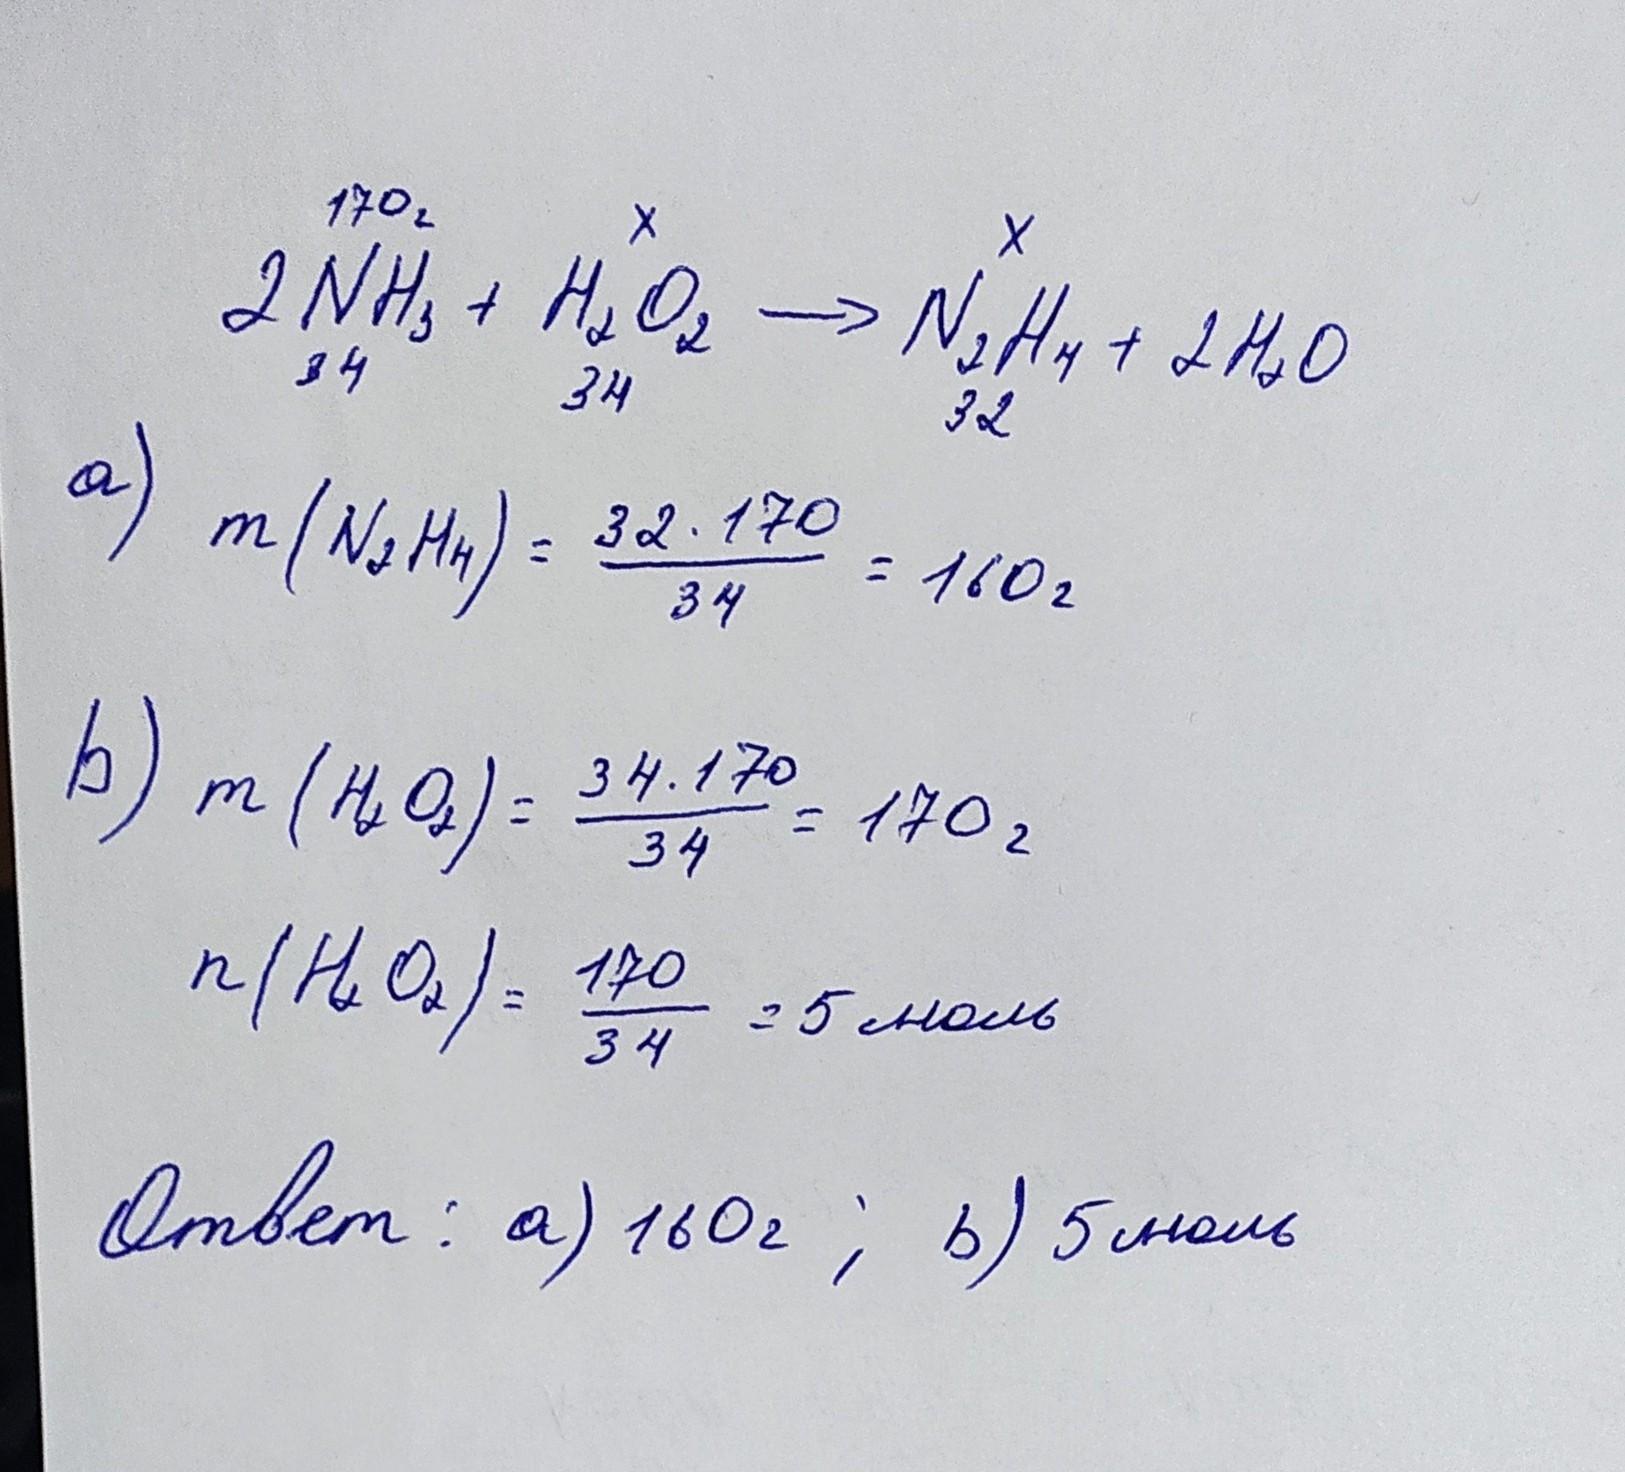 170г x x
2NH₃ + H₂O₂ → N₂H₄ + 2H₂O
34 34 32
a) m(N₂H₄) = 32·170/34 = 160г
b) m(H₂O₂) = 34·170/34 = 170г
n(H₂O₂) = 170/34 = 5 моль
Ответ: a) 160г; b) 5 моль